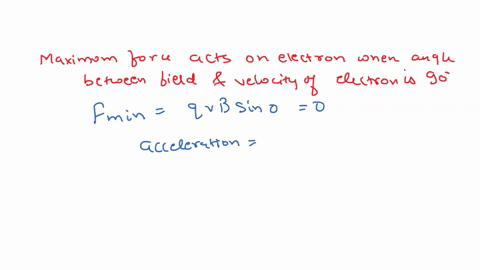 Maximum force acts on electron when angle
between field & velocity of electron is 90°
Fmin = qvB sin 0 = 0
acceleration =